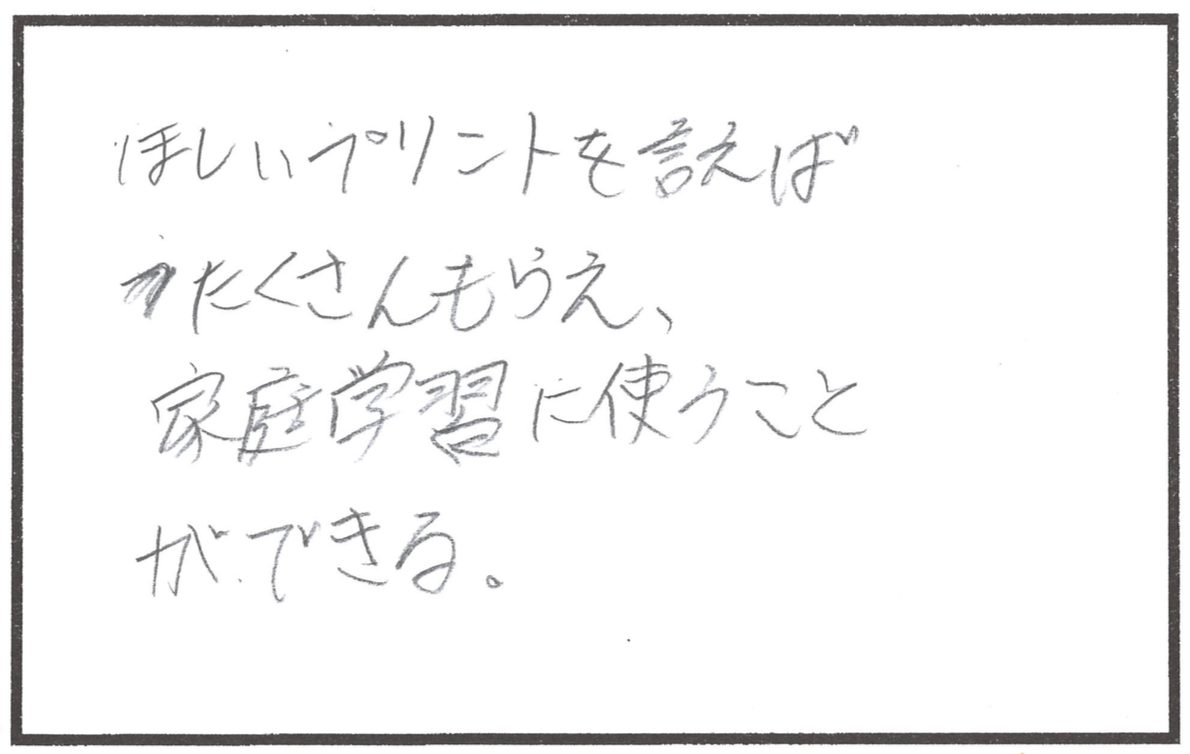 ほしいプリントを言えば
たくさんもらえ、
家庭学習に使うこと
ができる。